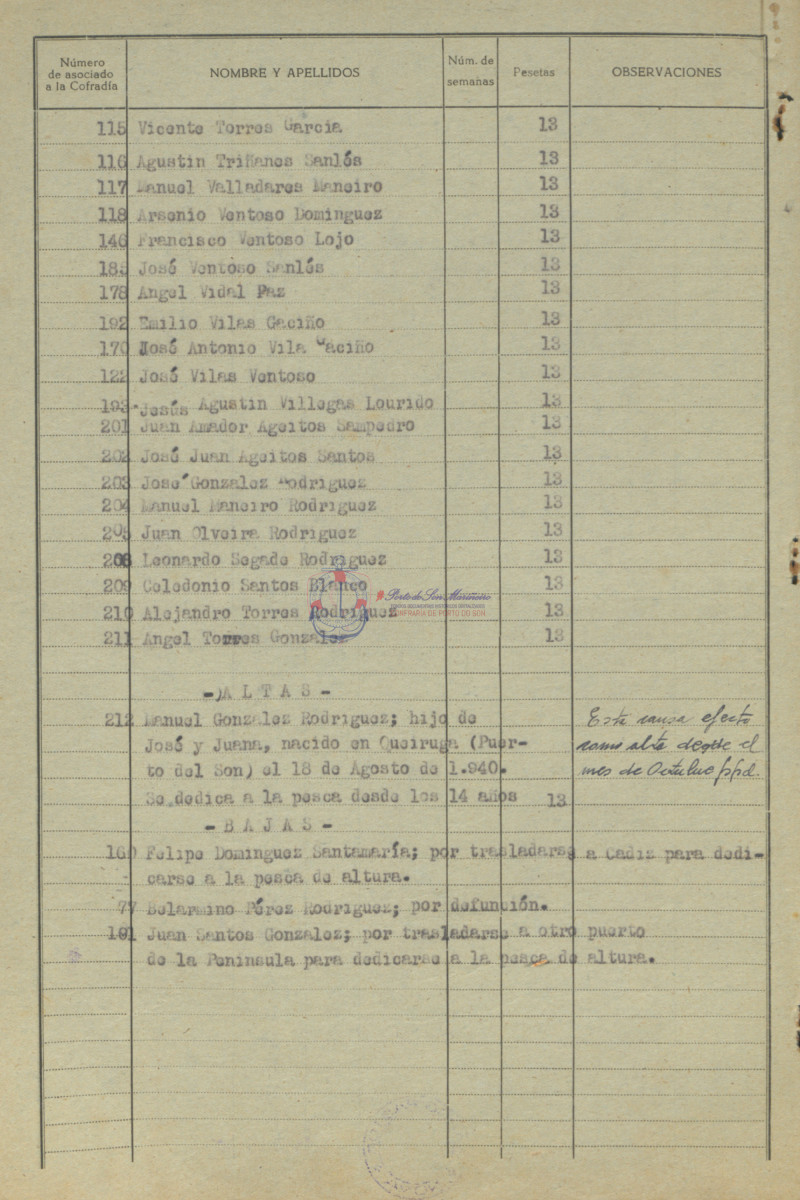 Número de asociado a la Cofradía
NOMBRE Y APELLIDOS
Núm. de semanas
Pesetas
OBSERVACIONES
115 Vicente Torres Garcia 13
116 Agustin Triñanes Sanlés 13
117 Manuel Valladares Maneiro 13
118 Arsenio Ventoso Dominguez 13
146 Francisco Ventoso Lojo 13
José Ventoso Sanlés 13
178 Angel Vidal Paz 13
192 Emilio Vilas Gaciño 13
170 José Antonio Vila Gaciño 13
122 José Vilas Ventoso 13
193 Jesús Agustin Villegas Lourido 13
201 Juan Amador Ageitos Sampedro 13
202 José Juan Ageitos Santos 13
203 José Gonzalez Rodriguez 13
204 Manuel Maneiro Rodriguez 13
205 Juan Olveira Rodriguez 13
208 Leonardo Segade Rodriguez 13
209 Celedonio Santos Blanco 13
Porto do Son Mariñeiro
CONFRARÍA DE PORTO DO SON
210 Alejandro Torres Rodriguez 13
211 Angel Torres Gonzalez 13
- A L T A S -
212 Manuel Gonzalez Rodriguez; hijo de
José y Juana, nacido en Queiruga (Puer-
to del Son) el 18 de Agosto de 1.940.
Se dedica a la pesca desde los 14 años 13
Esta causa efecto
como alta desde el
mes de Octubre ppd.
- B A J A S -
160 Felipe Dominguez Santamaría; por trasladarse a Cadiz para dedi-
carse a la pesca de altura.
77 Belarmino Pérez Rodriguez; por defunción.
191 Juan Santos Gonzalez; por trasladarse a otro puerto
de la Peninsula para dedicarse a la pesca de altura.